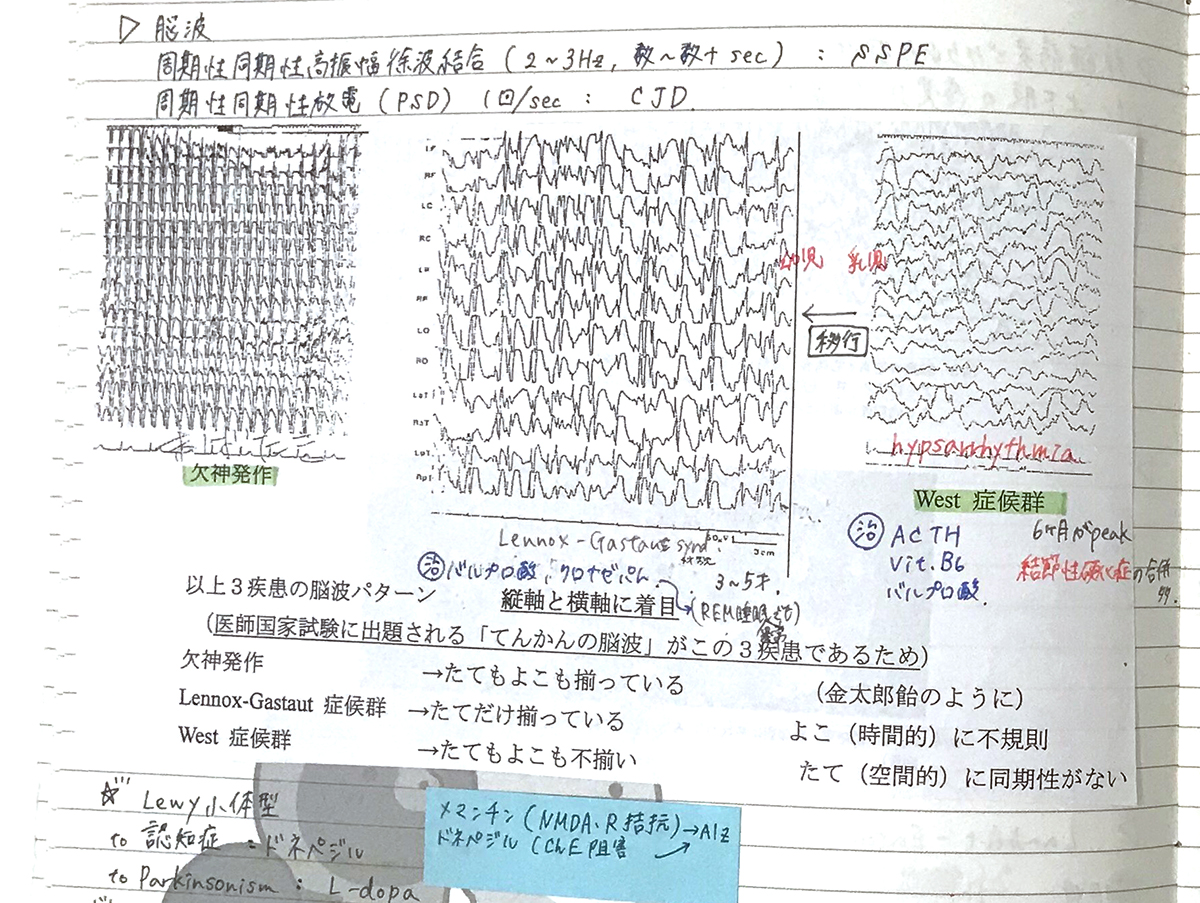 ▷ 脳波
周期性同期性高振幅徐波結合（2～3Hz, 数～数十sec）： SSPE
周期性同期性放電（PSD） 1回/sec ： CJD.
LF
RF
LC
RC
RF
LO
RO
幼児 乳児
← 移行
hypsarrhythmia
欠神発作
West 症候群
Lennox-Gastaut synd.
3cm
治 ACTH 6ヶ月がpeak
vit.B6 結節性硬化症の合併
バルプロ酸.
治 バルプロ酸, クロナゼパム. 3～5才.
以上３疾患の脳波パターン 縦軸と横軸に着目 (REM睡眠
（医師国家試験に出題される「てんかんの脳波」がこの３疾患であるため）
欠神発作 →たてもよこも揃っている （金太郎飴のように）
Lennox-Gastaut 症候群 →たてだけ揃っている よこ（時間的）に不規則
West 症候群 →たてもよこも不揃い たて（空間的）に同期性がない
☆ Lewy小体型
to 認知症 ： ドネペジル
to Parkinsonism : L-dopa
メマンチン (NMDA-R拮抗) →Alz
ドネペジル (ChE阻害